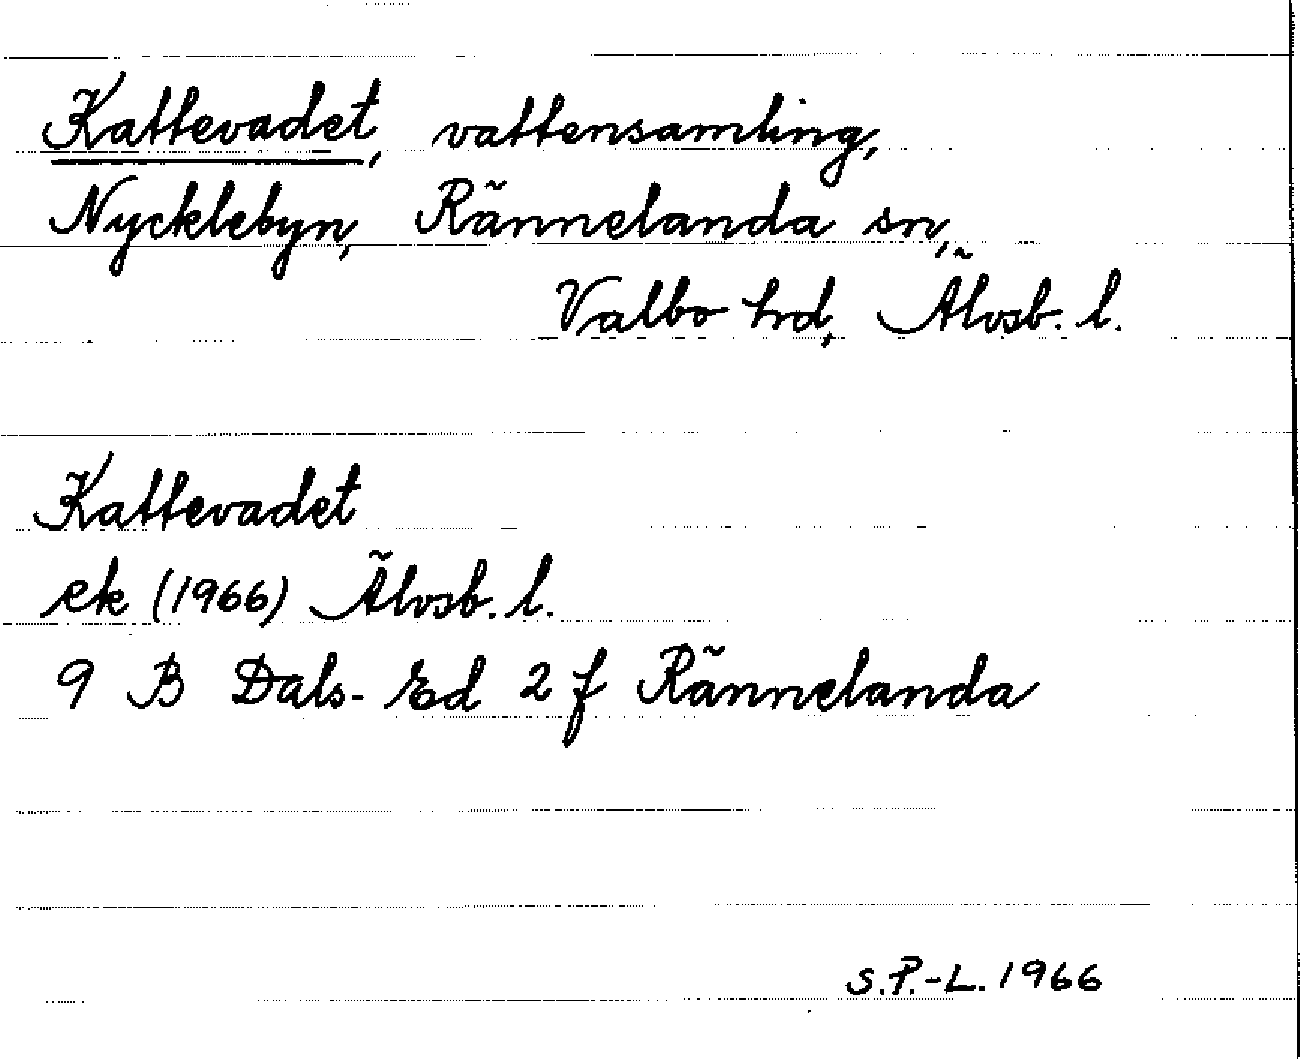 Kattevadet, vattensamling,
Nycklebyn, Rännelanda sn,
Valbo hrd, Älvsb. l.
Kattevadet
ek (1966) Älvsb. l.
9 B Dals-Ed 2 f Rännelanda
S.P.-L. 1966